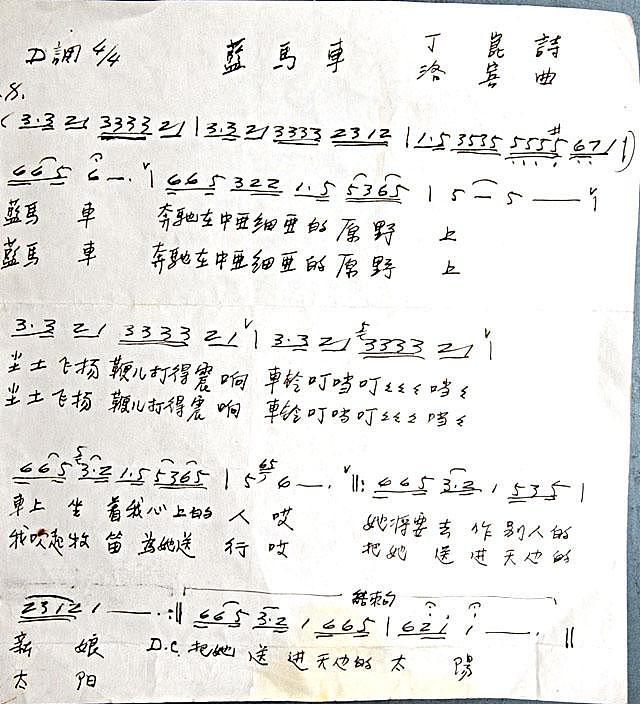 D調 4/4 藍馬車 丁崑詩
洛賓曲
(3·3 21 3333 21 | 3·3 21 3333 2312 | 1·5 3535 5555 671 |)
665 6 —·ˇ| 665 322 1·5 5365 | 5 — 5 —— ˇ|
藍馬車 奔馳在中亞細亞的原野上
藍馬車 奔馳在中亞細亞的原野上
3·3 21 3333 21ˇ| 3·3 21 3333 21ˇ|
尘土飞扬鞭儿打得震响 車铃叮噹叮ミミミ噹ミ
尘土飞扬鞭儿打得震响 車铃叮噹叮ミミミ噹ミ
665 3·2 1·5 5365 | 5 6 —·ˇ ‖: 665 3·2 1 535 |
車上坐着我心上的人哎 她将要去作别人的
我吹起牧笛為她送行哎 把她送進天边的
結束句
2312 1 ——·:‖ 665 3·2 1 665 | 621 1 ——· ‖
新娘 D.C. 把她送進天边的太陽
太阳